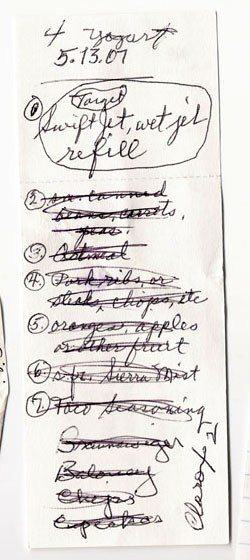 4 Yogurt
5.13.07
① Target
Swiffet, wet jet
refill
② sm. canned
beans, carrots,
peas.
③ Oatmeal
④ Pork, ribs, or
steaks, chops, etc
⑤ oranges, apples
or other fruit
⑥ Sierra Mist
⑦ Taco Seasoning
Braunsweiger
Baloney
Chips
cupcakes
Clorox